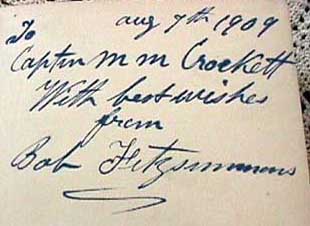 aug 7th 1909
To
Captin M M Crockett
With best wishes
from
Bob Fitzsimmons